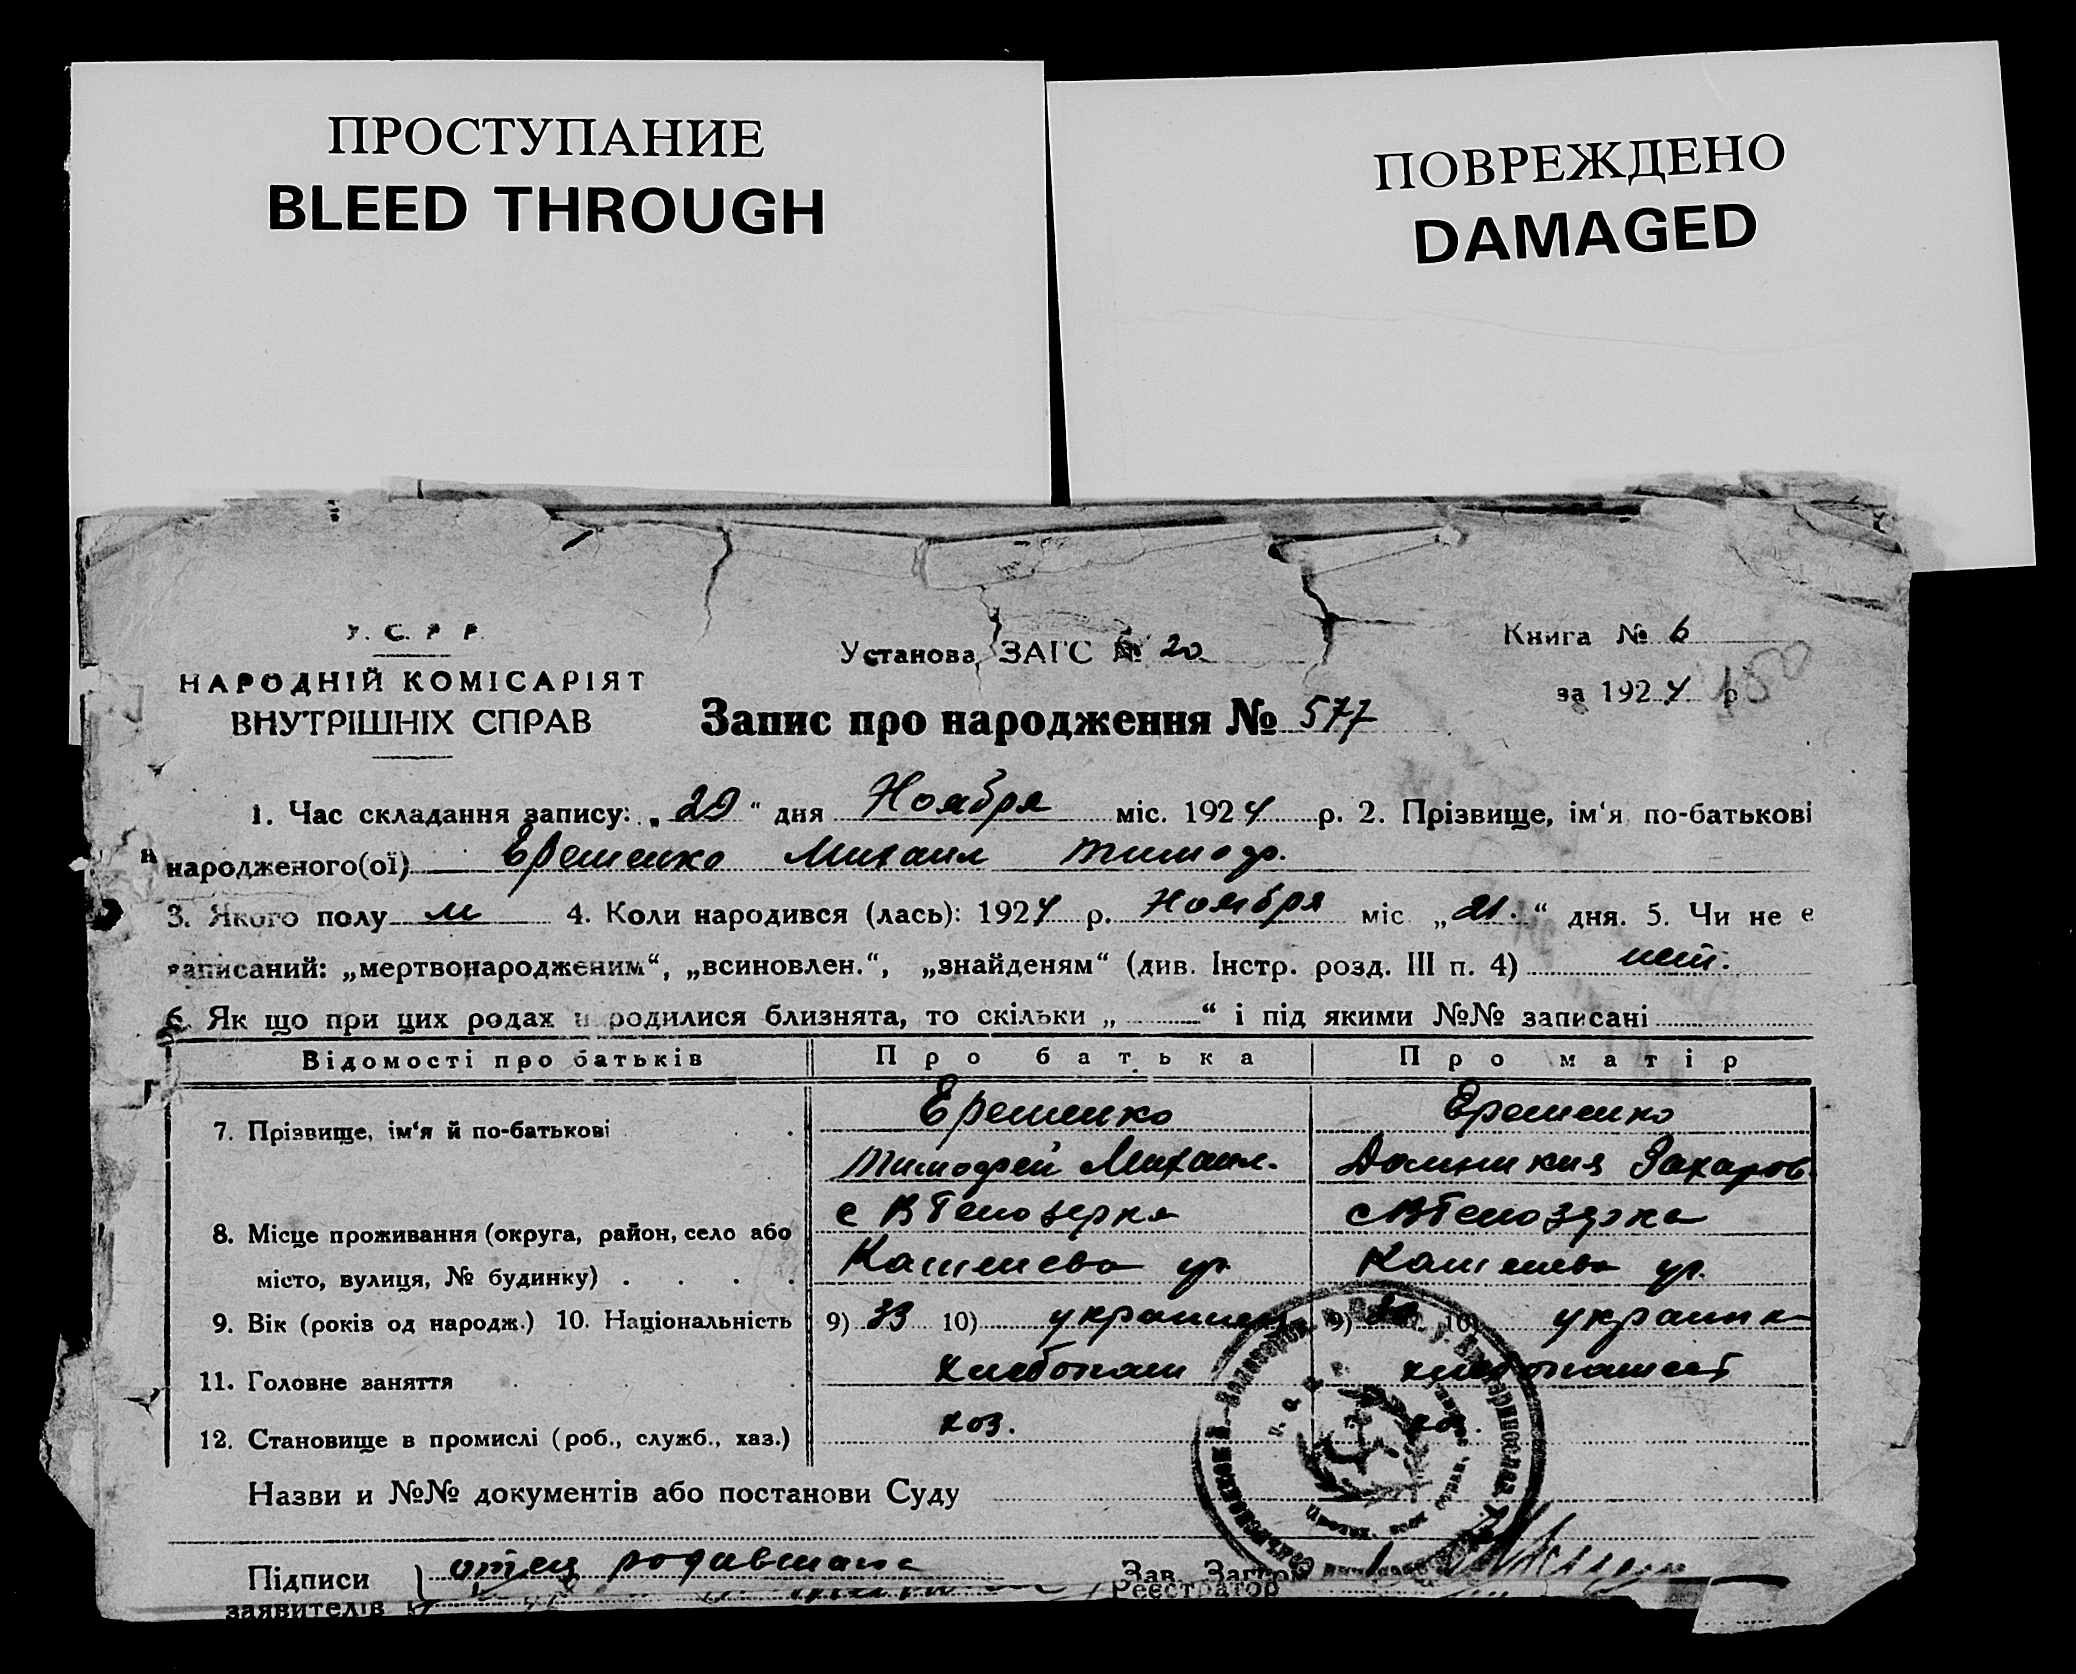 ПРОСТУПАНИЕ
BLEED THROUGH
ПОВРЕЖДЕНО
DAMAGED
У. С. Р. Р.
НАРОДНІЙ КОМІСАРІЯТ
ВНУТРІШНІХ СПРАВ
Установа ЗАГС № 20
Книга № 6
за 1924 р
Запис про народження № 577
1. Час складання запису: „29“ дня Ноября міс. 1924 р. 2. Прізвище, ім‘я по-батькові
народженого(ої) Ерешенко Михаил Тимоф.
3. Якого полу м 4. Коли народився (лась): 1924 р. Ноября міс „21.“ дня. 5. Чи не є
записаний: „мертвонародженим“, „всиновлен.“, „знайденям“ (див. Інстр. розд. III п. 4) нет.
6. Як що при цих родах народилися близнята, то скільки „ “ і під якими №№ записані
Відомості про батьків Про батька Про матір
7. Прізвище, ім‘я й по-батькові Ерешенко Ерешенко
Тимофей Михаил. Домникия Захаров.
8. Місце проживання (округа, район, село або с Белозерка с Белозерка
місто, вулиця, № будинку)
9. Вік (років од народж.) 10. Національність 9) 33 10) украинец 9) 10) украинк
11. Головне заняття хлебопаш
12. Становище в промислі (роб., служб., хаз.) хоз. хоз.
Назви и №№ документів або постанови Суду
Підписи отец родившаго Зав. Загсом
заявителів Реєстратор